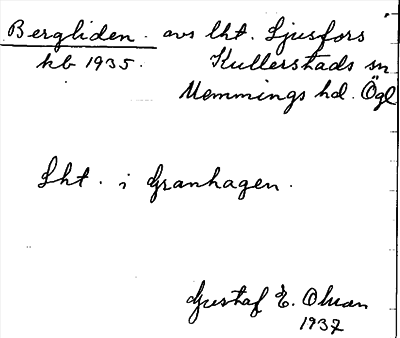 Bergliden. avs lht. Ljusfors
kb 1935. Kullerstads sn
Memmings hd. Ögl
Lht. i Granhagen.
Gustaf E. Olman
1937